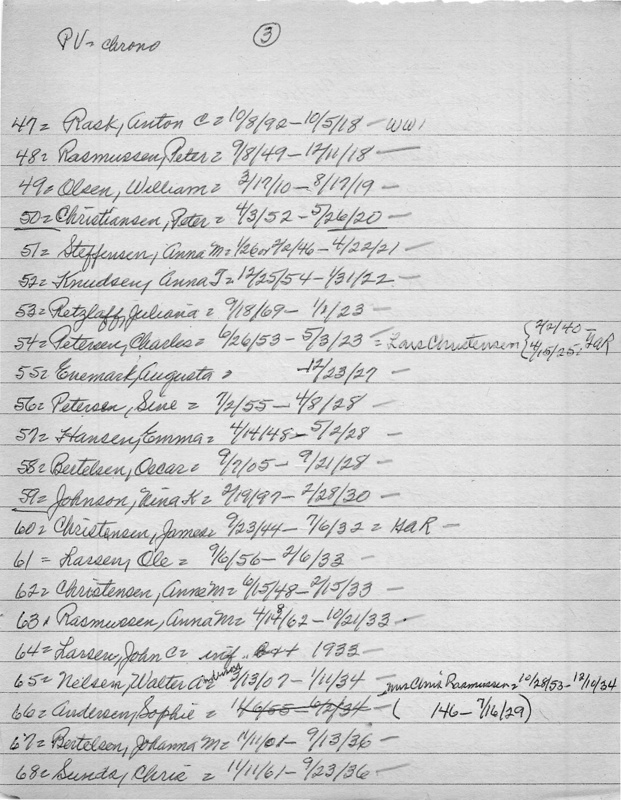 PV = Chrono
3
47 = Rask, Anton C = 10/8/92 - 10/5/18 - WW1
48 = Rasmussen, Peter = 9/8/49 - 12/11/18 -
49 = Olsen, William = 3/17/10 - 8/17/19 -
50 = Christiansen, Peter = 4/3/52 - 5/26/20 -
51 = Steffensen, Anna M = 1/26 or 2/2/46 - 4/22/21 -
52 = Knudsen, Anna T = 12/25/54 - 1/31/22 -
53 = Retzlaff, Juliana = 9/18/69 - 1/2/23 -
54 = Petersen, Charles = 6/26/53 - 5/3/23 = Lars Christensen { 2/2/40 - 4/15/25 = GAR
55 = Enemark, Augusta = - 12/23/27 -
56 = Petersen, Sine = 7/2/55 - 4/8/28 -
57 = Hansen, Emma = 4/14/48 - 5/2/28 -
58 = Bertelsen, Oscar = 9/7/05 - 9/21/28 -
59 = Johnson, Nina K = 2/19/97 - 2/28/30 -
60 = Christensen, James = 9/23/44 - 7/6/32 = GAR -
61 = Larsen, Ole = 9/6/56 - 2/6/33
62 = Christensen, Anne M = 6/15/48 - 2/15/33 -
63 = Rasmussen, Anna M = 4/18/62 - 10/21/33 -
64 = Larsen, John C = inf. 1933 -
65 = Nelsen, Walter A = 2/13/07 - 1/11/34 - Mrs Chris Rasmussen = 10/28/53 - 12/10/34
66 = Andersen, Sophie = 11/6/55 - 6/2/34 - ( 146 - 7/16/29)
67 = Bertelsen, Johanna M = 11/1/01 - 9/13/36 -
68 = Sunds, Chris = 11/11/61 - 9/23/36 -